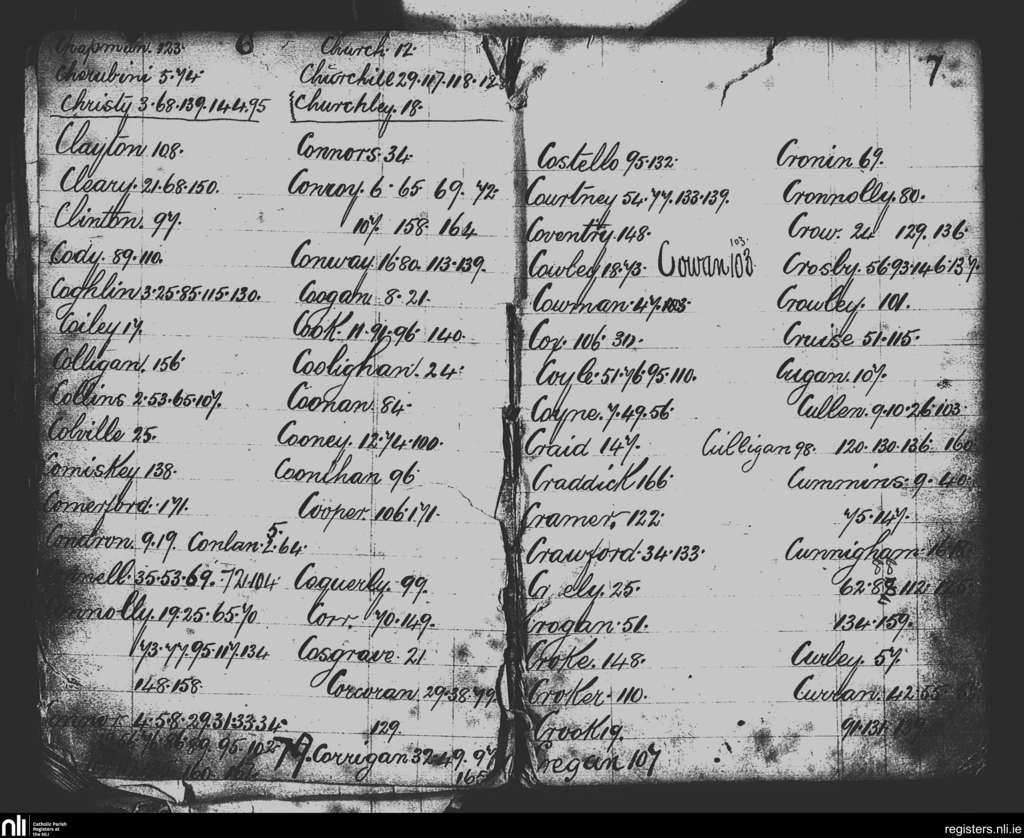 6
Chapman. 123
Cherubini 5.74
Christy 3.68.139.144.95
Clayton 108.
Cleary. 21.68.150.
Clinton. 97.
Cody. 89.110.
Coghlin 3.25.85.115.130.
Coiley 17
Colligan. 156
Collins 2.53.65.107.
Colville 25.
Comiskey 138
Comerford. 171.
Condron. 9.19. Conlan. 64.
Connell. 35.53.69. 72.104
Connolly. 19.25.65.70
73.77.95.117.134
148.158
Connor. 4.5.8.29.31.33.34.
95.102
Church. 12
Churchill 29.117.118.12
Churchley. 18.
Connors. 34
Conroy. 6. 65 69. 72
107. 158. 164
Conway 16.80. 113.139.
Coogan 8.21.
Cook. 11.91.96 140.
Coolighan. 24.
Coonan 84
Cooney. 12.74.100.
Coonihan 96
Cooper. 106.171.
Coguerly. 99.
Corr. 70.149.
Cosgrave. 21
Corcoran. 29.38.79
129
79. Corrigan 32.49.97
165
7
Costello 95.132.
Courtney 54.77.133.139.
Coventry. 148.
Cowley 18.73. Cowan 103
103.
Cowman. 47.103
Coy. 106. 30.
Coyle. 51.76.95.110.
Coyne. 7.49.56
Craid 147.
Craddick 166
Cramer. 122
Crawford. 34.133.
Cr ely. 25.
Crogan. 51.
Croke. 148.
Croker. 110.
Crook 19.
Cregan 107
Cronin 69.
Cronnolly. 80.
Crow. 24 129. 136
Crosby. 56.93.146.137.
Crowley. 101.
Cruise 51.115.
Cugan. 107.
Cullen. 9.10.26.103
Cilligan 98. 120.130.136 160
Cummins. 9. 40.
75.147.
Cunnigham.
62. 112.
134.159.
Curley. 57
Curran. 42.55
91.131.
nli
Catholic Parish
Registers at
the NLI
registers.nli.ie